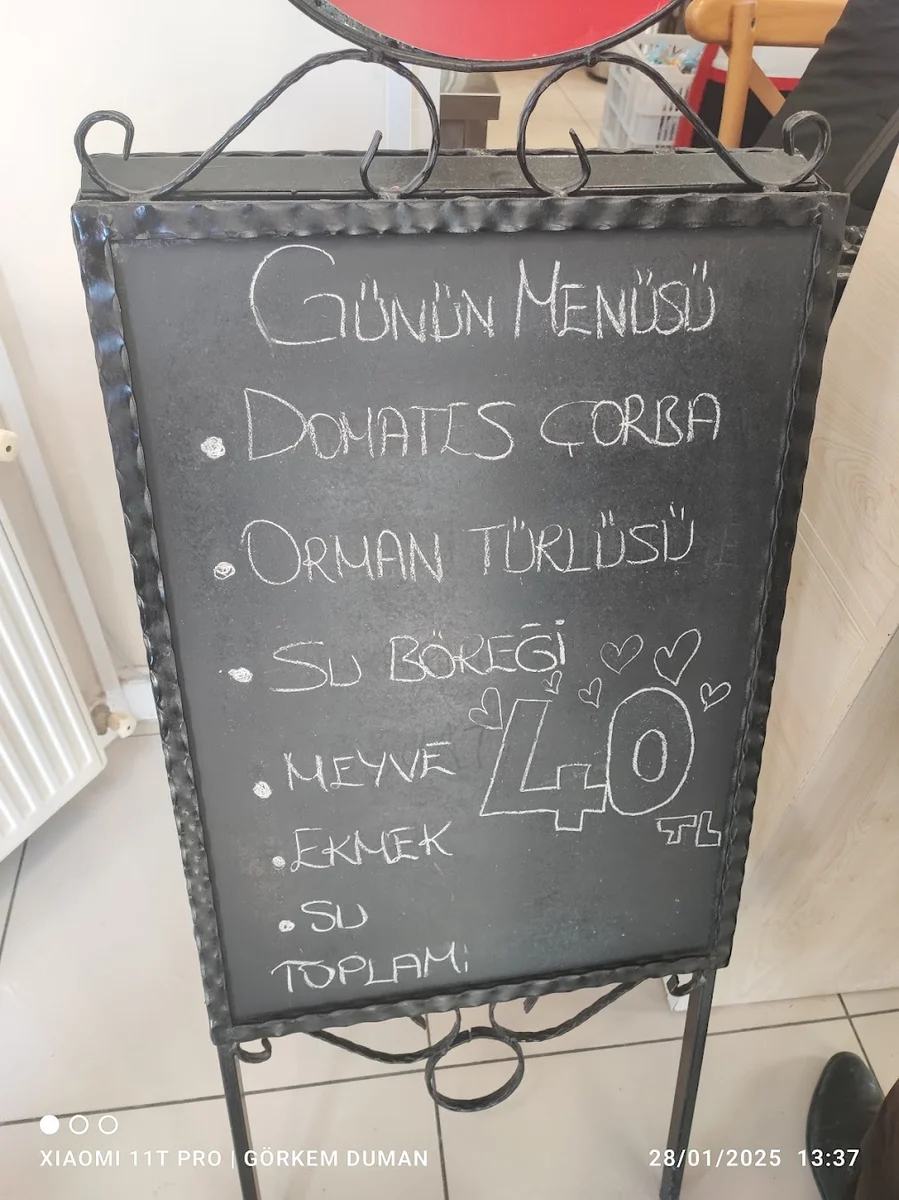 GÜNÜN MENÜSÜ
• DOMATES ÇORBA
• ORMAN TÜRLÜSÜ
• SU BÖREĞİ
• MEYVE
40
TL
• EKMEK
• SU
TOPLAMİ
XIAOMI 11T PRO | GÖRKEM DUMAN
28/01/2025 13:37